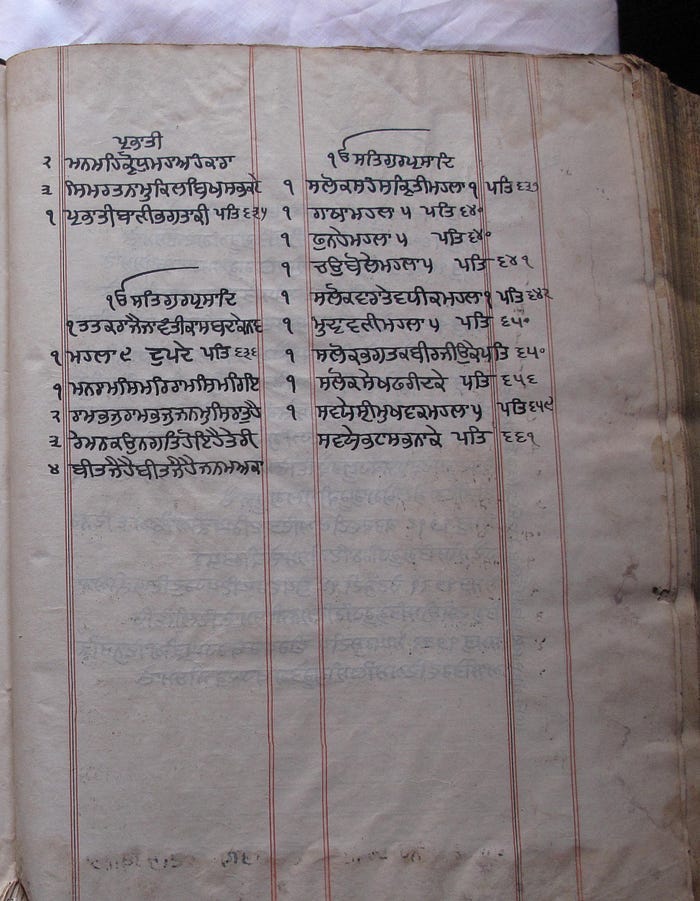 ਪ੍ਰਭਾਤੀ
੨ ਮਨਮਹਿਕ੍ਰੋਧਮਹਾਅਹੰਕਾਰਾ
੩ ਸਿਮਰਤਨਾਮੁਕਿਲਬਿਖਸਭਕਟੇ
੧ ਪ੍ਰਭਾਤੀਬਾਣੀਭਗਤਾਕੀ ਪਤਿ ੬੩੫
ੴ ਸਤਿਗੁਰਪ੍ਰਸਾਦਿ
੧ ਤਤਕਰਾਜੈਜਾਵੰਤੀਕਾਸਬਦਕੇ
੧ ਮਹਲਾ ੯ ਦੁਪਦੇ ਪਤਿ ੬੩੬
੧ ਰਾਮਸਿਮਰਿਰਾਮਸਿਮਰਿਇ
੨ ਰਾਮਭਜੁਰਾਮਭਜੁਜਨਮੁਸਿਰਾਤੁਹੈ
੩ ਰੇਮਨਕਉਨਗਤਿਹੋਇਹੈਤੇਰੀ
੪ ਬੀਤਜੈਹੈਬੀਤਜੈਹੈਜਨਮਅਕਾ
ੴ ਸਤਿਗੁਰਪ੍ਰਸਾਦਿ
੧ ਸਲੋਕਸਹਸਕ੍ਰਿਤੀਮਹਲਾ ੧ ਪਤਿ ੬੩੭
੧ ਗਾਥਾਮਹਲਾ ੫ ਪਤਿ ੬੪੦
੧ ਫੁਨਹੇਮਹਲਾ ੫ ਪਤਿ ੬੪੦
੧ ਚਉਬੋਲੇਮਹਲਾ ੫ ਪਤਿ ੬੪੧
੧ ਸਲੋਕਵਾਰਤੇਵਧੀਕਮਹਲਾ ੧ ਪਤਿ ੬੪੨
੧ ਮੁਦਾਵਣੀਮਹਲਾ ੫ ਪਤਿ ੬੫੦
੧ ਸਲੋਕਭਗਤਕਬੀਰਜੀਉਕੇਪਤਿ ੬੫੦
੧ ਸਲੋਕਸੇਖਫਰੀਦਕੇ ਪਤਿ ੬੫੬
੧ ਸਵਯੇਸ੍ਰੀਮੁਖਵਾਕਮਹਲਾ ੫ ਪਤਿ ੬੫੯
ਸਵਯੇਭਟਾਸਭਨਾਕੇ ਪਤਿ ੬੬੧